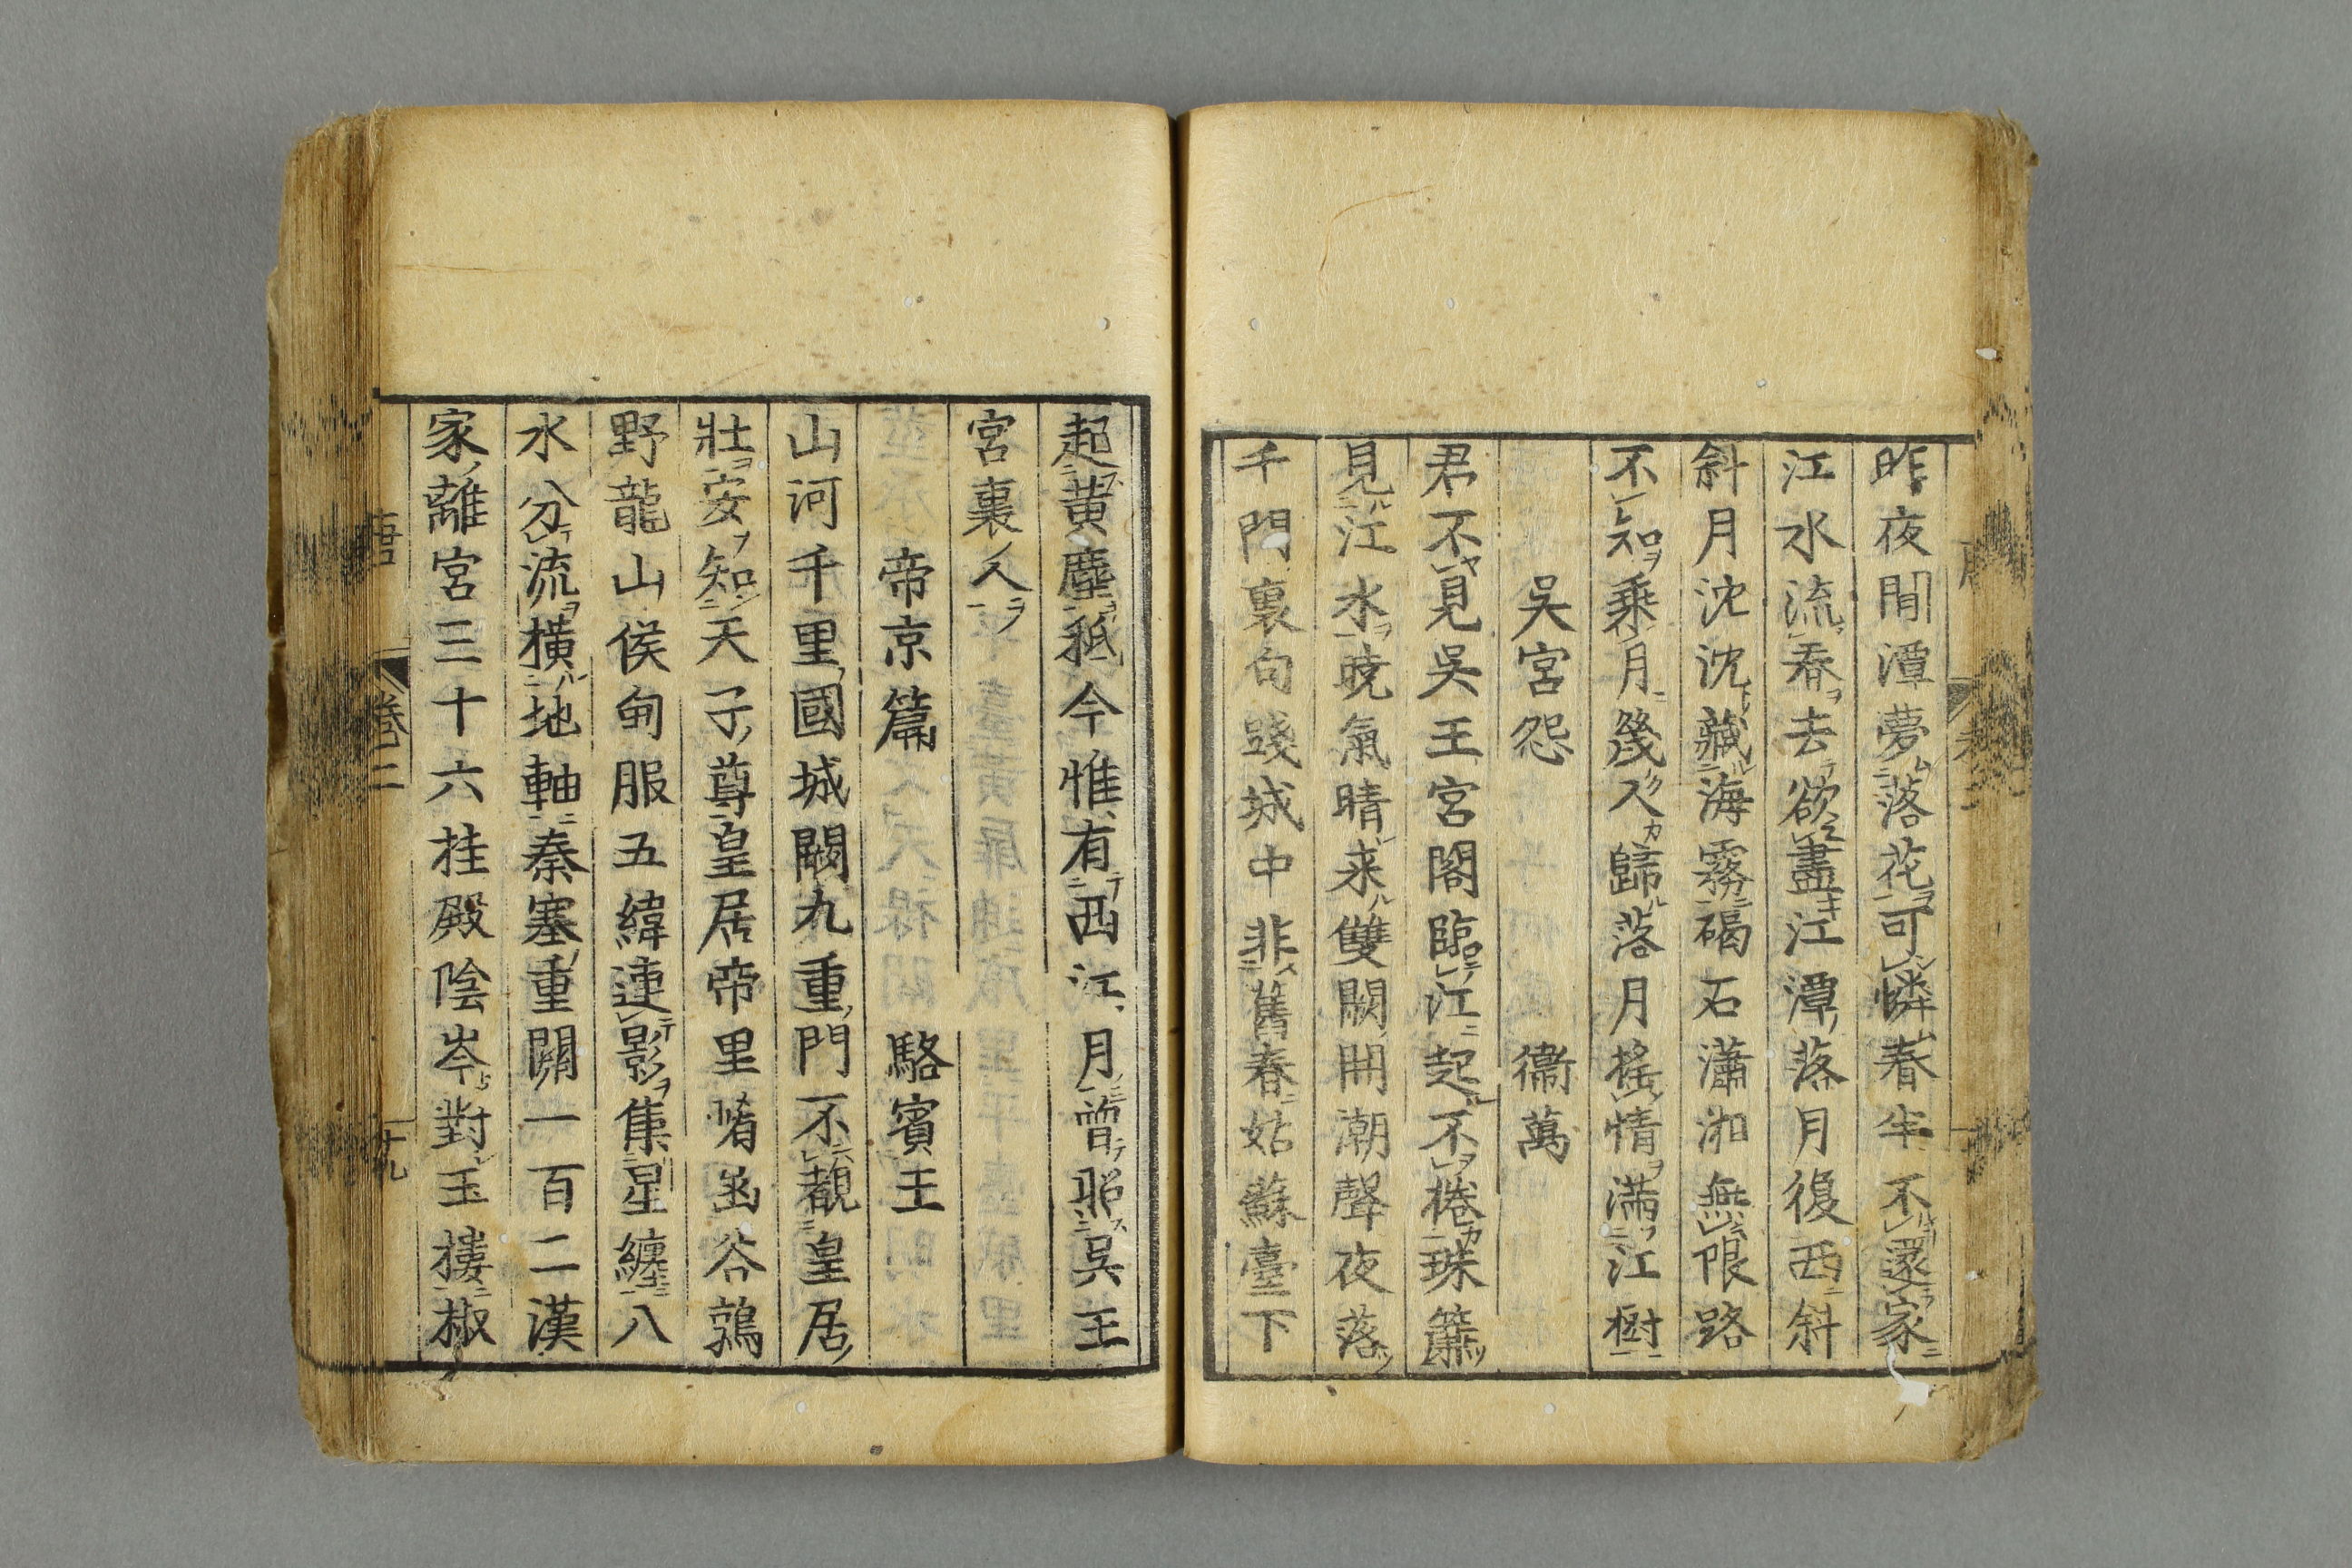 昨夜閒潭夢落花可憐春半不還家
江水流春去欲盡江潭落月復西斜
斜月沈沈藏海霧碣石瀟湘無限路
不知乘月幾人歸落月搖情滿江樹
吳宮怨 衞萬
君不見吳王宮閣臨江起不捲珠簾
見江水曉氣晴来雙闕開潮聲夜落
千門裏句踐城中非舊春姑蘇臺下
起黄塵秪今惟有西江月曽照吳王
宮裏人
帝京篇 駱賓王
山河千里國城闕九重門不覩皇居
壮安知天子尊皇居帝里崤函谷鶉
野龍山侯甸服五緯連影集星纏八
水分流橫地軸秦塞重關一百二漢
家離宮三十六桂殿陰岑對玉樓椒
唐 卷二 十九